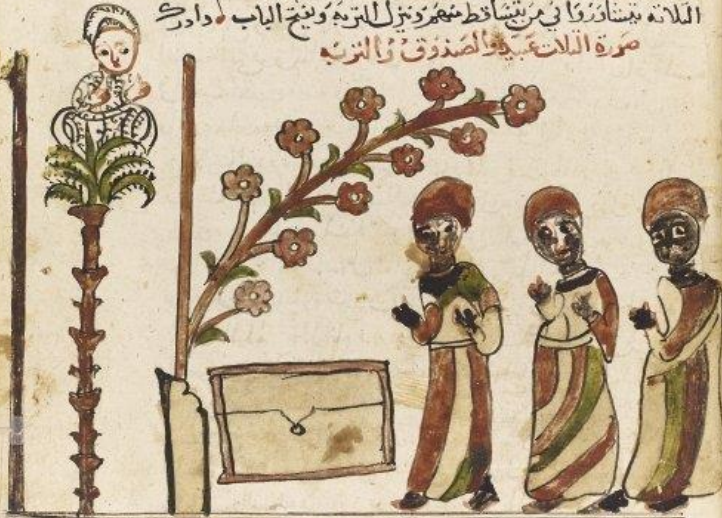 التلاته يتشاوروا في من يتساقط منهم وينزل التربه ويفتح الباب
صورة التلات عبيد والصندوق والتربه